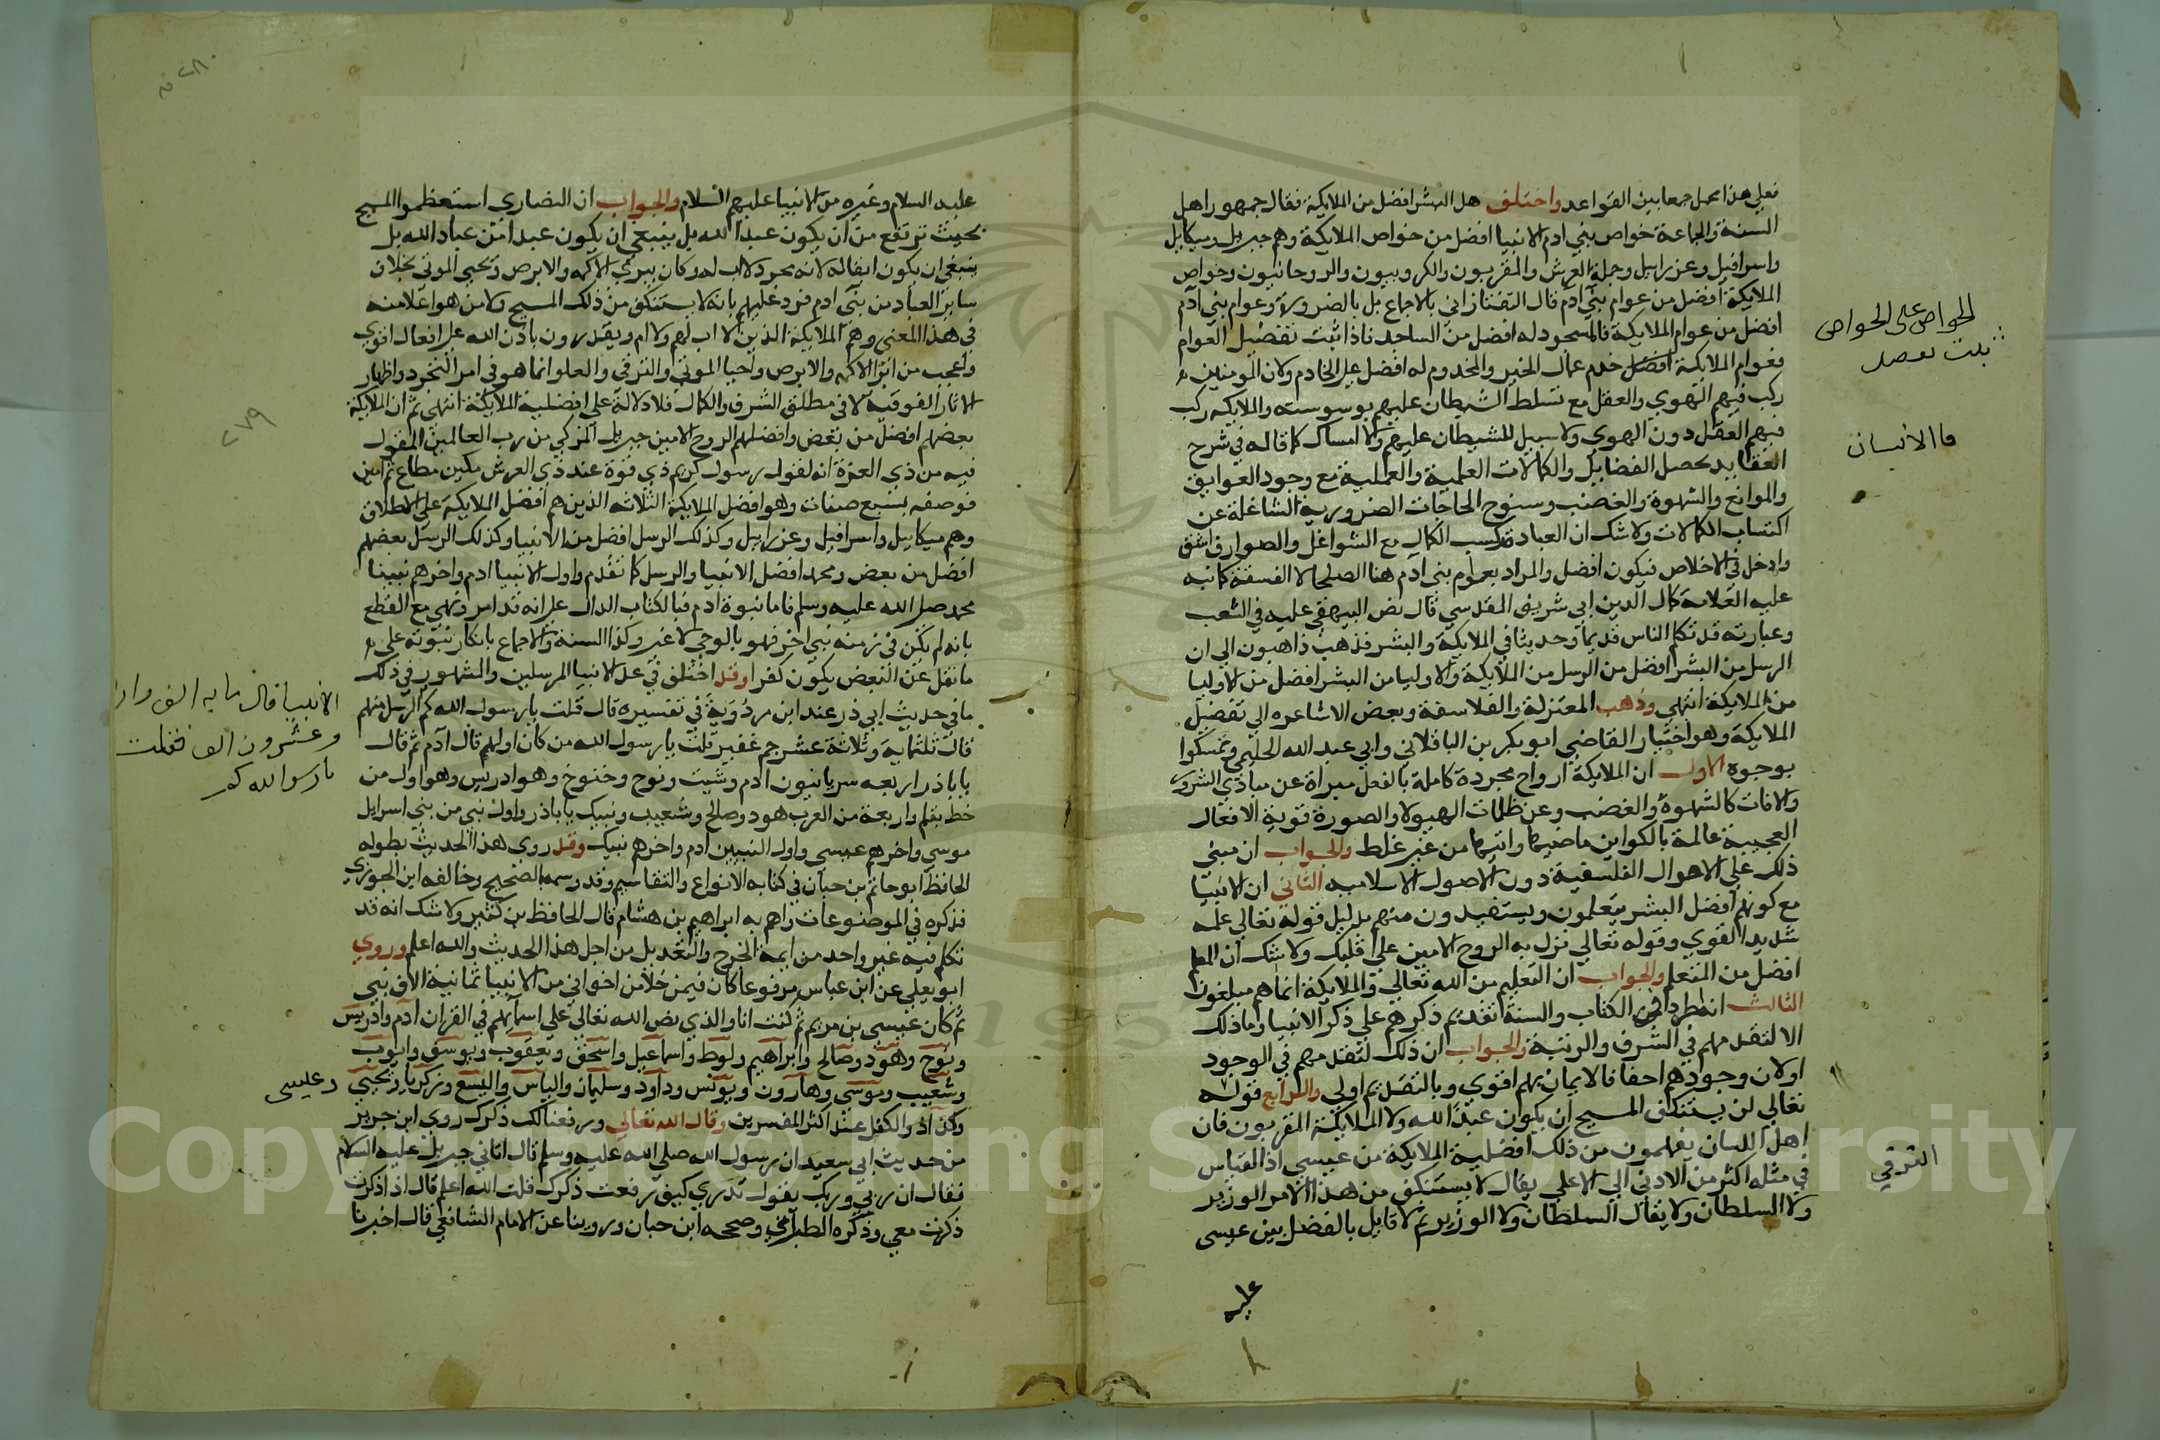 فعلي هذا محمل جمعا بين القواعد واختلف هل البشر افضل من الملايكة فقال جمهور اهل
السنة والجماعة خواص بني ادم الانبيا افضل من خواص الملايكة وهم جبريل وميكايل
واسرافيل وعزرايل وحملة العرش والمقربون والكروبيون والروحانيون وخواص
الملايكة افضل من عوام بني ادم قال التفتازاني بالاجماع بل بالضرورة وعوام بني ادم
افضل من عوام الملايكة فالمسجود له افضل من الساجد فاذا ثبت تفضيل العوام
الخواص على الخواص
ثبت تفضيل
فعوام الملايكة افضل خدم عمال الخير والمخدوم له افضل علي الخادم ولان المومنين
ركب فيهم الهوي والعقل مع تسلط الشيطان عليهم بوسوسته والملايكة ركب
فيهم العقل دون الهوي ولا سبيل للشيطان عليهم والامساك كما قاله في شرح
فالانسان
العقايد يحصل الفضايل والكمالات العلمية والعملية مع وجود العوايق
والموانع والشهوة والغضب وسنوح الحاجات الضرورية الشاغلة عن
اكتساب الكمالات ولا شك ان العبادة وكسب الكمال مع الشواغل والصوارف اشق
وادخل في الاخلاص فيكون افضل والمراد بعوام بني ادم هنا الصلحا لا الفسقة كما نبه
عليه العلامة كمال الدين ابي شريف المقدسي قال نص البيهقي عليه في الشعب
وعبارته قد تكلم الناس قديما وحديثا في الملايكة والبشر فذهب ذاهبون الي ان
الرسل من البشر افضل من الرسل من الملايكة والاوليا من البشر افضل من الاوليا
من الملايكة انتهي وذهب المعتزلة والفلاسفة وبعض الاشاعره الي تفضيل
الملايكة وهو اختيار القاضي ابو بكر بن الباقلاني وابي عبد الله الحليمي وتمسكوا
بوجوه الاول ان الملايكة ارواح مجردة كاملة بالفعل مبراة عن مبادي الشرور
والافات كالشهوة والغضب وعن ظلمات الهيولا والصورة قوية الافعال
العجيبة عالمة بالكواين ماضيها واتيها من غير غلط والجواب ان مبني
ذلك علي الاهوال الفلسفية دون الاصول الاسلاميه الثاني ان الانبيا
مع كونهم افضل البشر يتعلمون ويستفيدون منهم بدليل قوله تعالي علمه
شديد القوي وقوله تعالي نزل به الروح الامين علي قلبك ولا شك ان المعلم
افضل من المتعلم والجواب ان التعليم من الله تعالي والملايكة انما هم مبلغون
الثالث انه اطرد في الكتاب والسنة تقديم ذكرهم علي ذكر الانبيا وما ذلك
الا لتقدمهم في الشرف والرتبة والجواب ان ذلك لتقدمهم في الوجود
اولان وجودهم اخفا فالايمان بهم اقوي وبالتقديم اولي والرابع قوله
تعالي لن يستنكف المسيح ان يكون عبد الله ولا الملايكة المقربون فان
اهل اللسان يفهمون من ذلك افضلية الملايكة من عيسي اذ القياس
الترقي
في مثله اكثر من الادني الي الاعلي يقال لا يستنكف من هذا الامر الوزير
ولا السلطان ولا يقال السلطان ولا الوزير ثم لا قايل بالفضل بين عيسي
عليه
عليه السلام وغيره من الانبيا عليهم السلام والجواب ان النصاري استعظموا المسيح
بحيث ترتفع من ان يكون عبد الله بل ينبغي ان يكون عبدا من عباد الله بل
ينبغي ان يكون ابنا له لانه مجرد لا اب له وكان يبري الاكمه والابرص ويحيي الموتي بخلاف
ساير العباد من بني ادم فرد عليهم بانه لا يستنكف من ذلك المسيح ولا من هو اعلا منه
في هذا المعني وهم الملايكة الذين لا اب لهم ولا ام ويقدرون باذن الله علي افعال اقوي
واعجب من ابرا الاكمه والابرص واحيا الموتي والترقي والعلو انما هو في امر التجرد واظهار
الاثار الفوقية لا في مطلق الشرف والكمال فلا دلالة علي افضلية الملايكة انتهي ثم ان الملايكة
بعضهم افضل من بعض وافضلهم الروح الامين جبريل المزكي من رب العالمين المقول
٢٧٩
فيه من ذي العزة انه لقول رسول كريم ذي قوة عند ذي العرش مكين مطاع ثم امين
فوصفه بسبع صفات وهو افضل الملايكة الثلاثه الذين هم افضل الملايكة علي الاطلاق
وهم ميكاييل واسرافيل وعزراييل وكذلك الرسل افضل من الانبيا وكذلك الرسل بعضهم
افضل من بعض ومحمد افضل الانبيا والرسل كما تقدم واول الانبيا ادم واخرهم نبينا
محمد صلى الله عليه وسلم فاما نبوة ادم فبالكتاب الدال علي انه قد امر ونهي مع القطع
بانه لم يكن في زمنه نبي اخر فهو بالوحي لا غير وكذا السنة والاجماع بانكار نبوته علي
ما نقل عن البعض يكون كفرا وقد اختلف في عدد الانبيا المرسلين والمشهور في ذلك
ما في حديث ابي ذر عند ابن مردوية في تفسيره قال قلت يا رسول الله كم الرسل منهم
الانبيا قال مايه الف واربعة
وعشرون الف فقلت
يا رسول الله كم
قال ثلثماية وثلاثة عشر جم غفير قلت يا رسول الله من كان اولهم قال آدم ثم قال
يا با ذر اربعه سريانيون ادم وشيث ونوح وخنوخ وهو ادريس وهو اول من
خط بقلم واربعة من العرب هود وصالح وشعيب ونبيك يا با ذر واول نبي من بني اسرايل
موسي واخرهم عيسي واول النبيين ادم واخرهم نبيك وقد روي هذا الحديث بطوله
الحافظ ابو حاتم بن حبان في كتابه الانواع والتقاسيم وقد وسمه بالصحيح وخالفه ابن الجوزي
فذكره في الموضوعات واتهم به ابراهيم بن هشام قال الحافظ بن كثير ولا شك انه قد
تكلم فيه غير واحد من ايمة الجرح والتعديل من اجل هذا الحديث والله اعلم وروي
ابو يعلي عن ابن عباس مرفوعا كان فيمن خلا من اخواني من الانبيا ثمانية الاف نبي
ثم كان عيسي بن مريم ثم كنت انا والذي نص الله تعالي علي اسمايهم في القران ادم وادريس
ونوح وهود وصالح وابراهيم ولوط واسماعيل واسحق ويعقوب ويوسف وايوب
وشعيب وموسي وهارون ويونس وداود وسليمان والياس واليسع وزكريا ويحيي
وعيسى
وكذا ذو الكفل عند اكثر المفسرين وقال الله تعالي ورفعنا لك ذكرك روي ابن جرير
من حديث ابي سعيد ان رسول الله صلي الله عليه وسلم قال اتاني جبريل عليه السلام
فقال ان ربي وربك يقول تدري كيف رفعت ذكرك قلت الله اعلم قال اذا ذكرت
ذكرت معي وذكره الطبراني وصححه ابن حبان وروينا عن الامام الشافعي قال اخبرنا
Copyright © King Saud University
1957